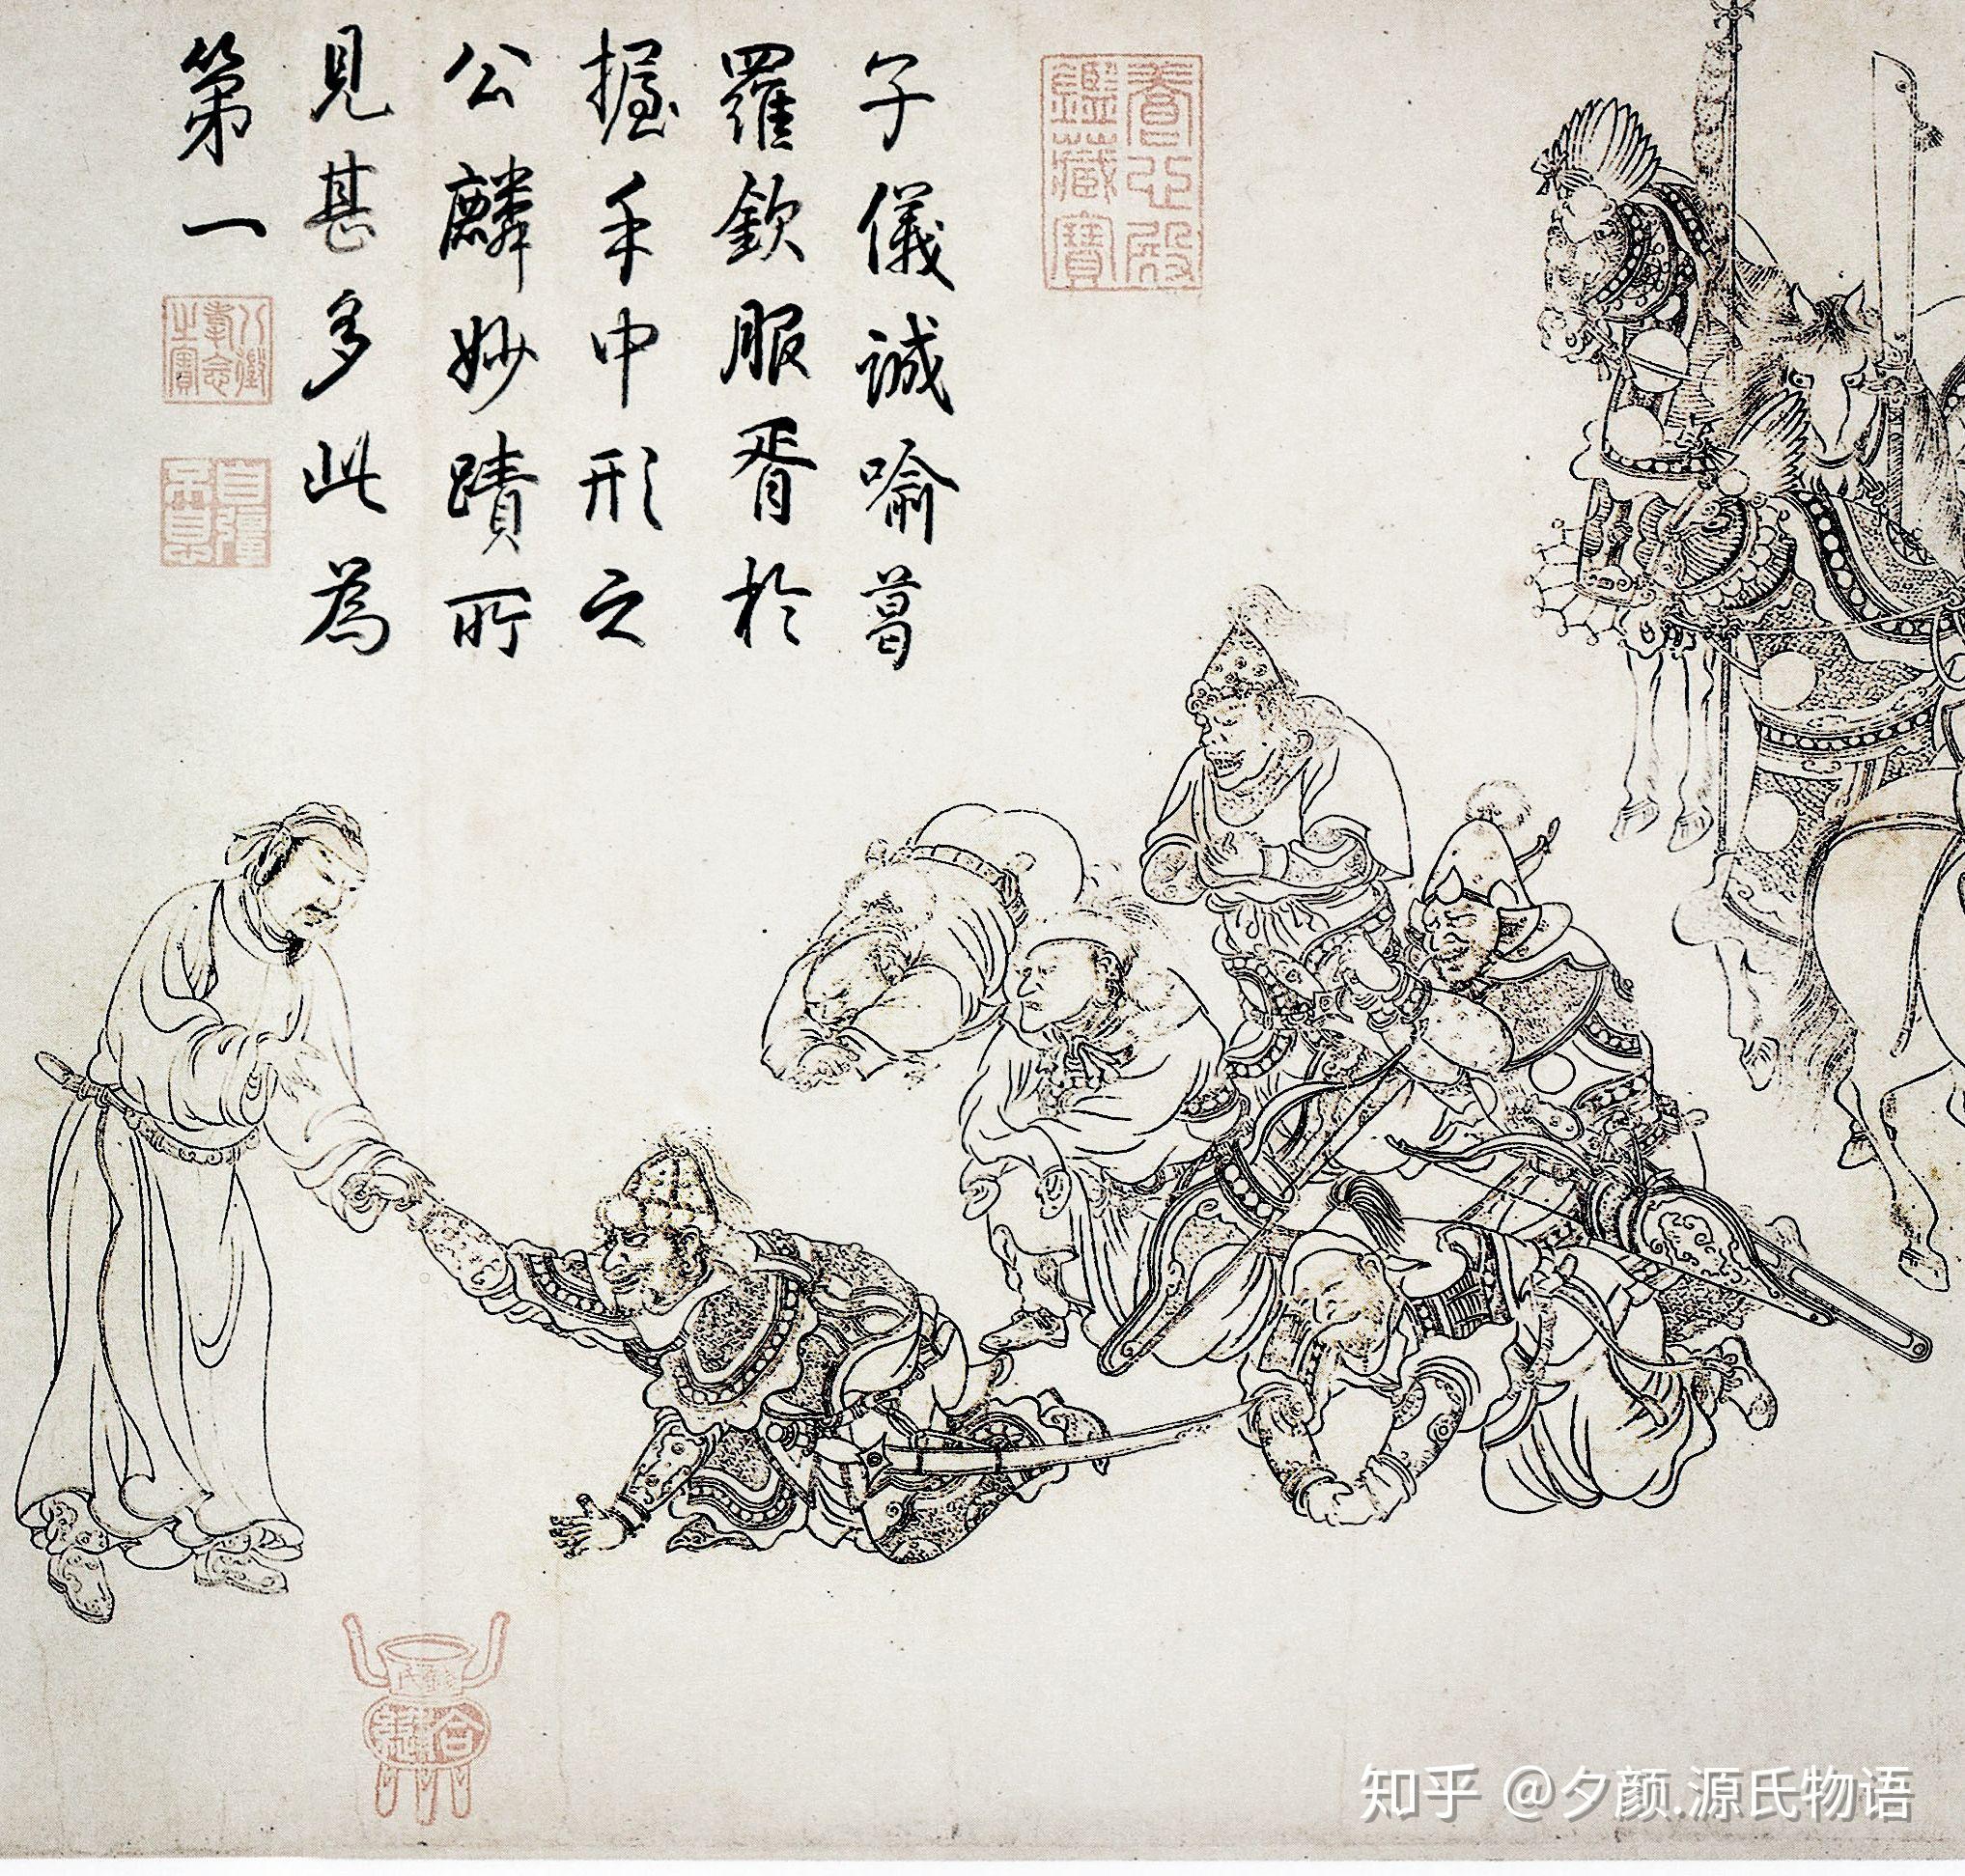 養心殿
鑑藏寶
子儀誠喻葛
羅欽服胥於
握手中形之
公麟妙蹟所
見甚多此為
第一
八徵
耄念
之寶
自彊
不息
知乎 @夕颜.源氏物语